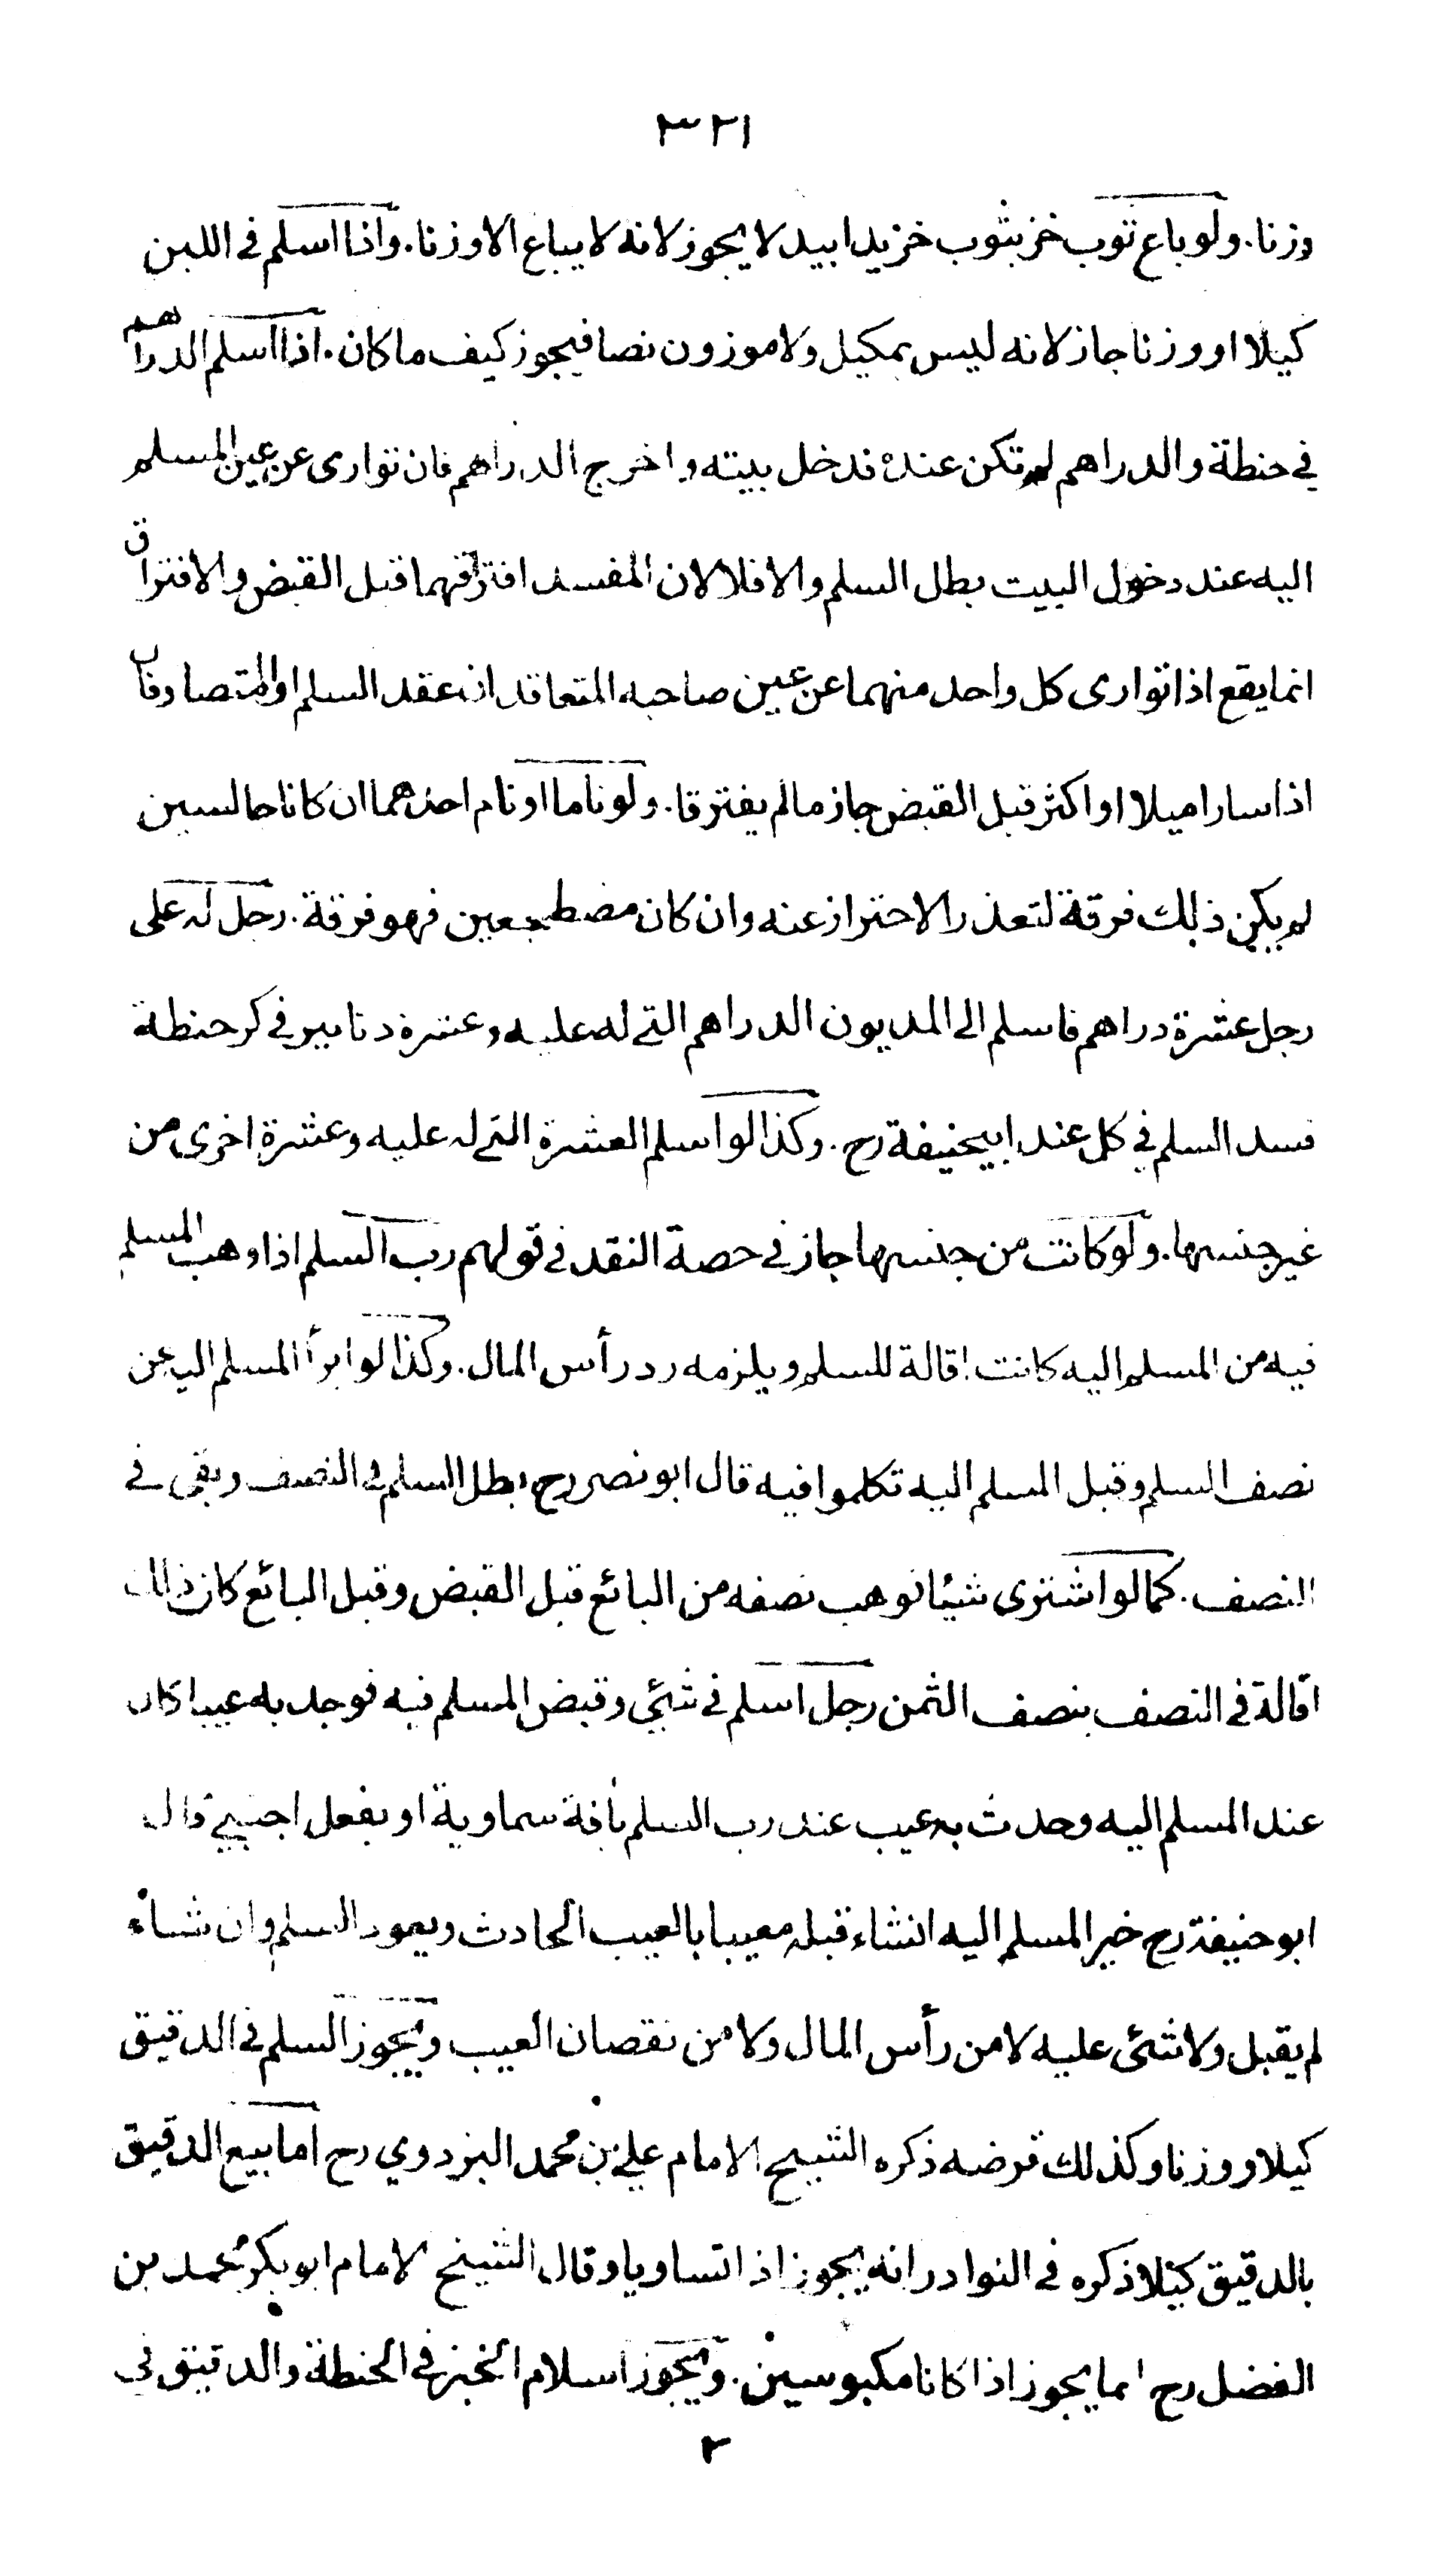 ٣٢١
وزنا. ولو باع ثوب خز بثوب خز يدا بيد لا يجوز لانه لا يباع الا وزنا. واذا اسلم فى اللبن
كيلا او وزنا جاز لانه ليس بمكيل ولا موزون نصا فيجوز كيف ما كان. اذا اسلم الدراهم
في حنطة والدراهم لم تكن عنده فدخل بيته واخرج الدراهم فان توارى عن عين المسلم
اليه عند دخول البيت بطل السلم والا فلا لان المفسد افتراقهما قبل القبض والافتراق
انما يقع اذا توارى كل واحد منهما عن عين صاحبه المتعاقدان عقد السلم او المتصارفان
اذا سارا ميلا او اكثر قبل القبض جاز ما لم يفترقا. ولو ناما او نام احدهما ان كانا جالسين
لم يكن ذلك فرقة لتعذر الاحتراز عنه وان كان مضطجعين فهو فرقة. رجل له على
رجل عشرة دراهم فاسلم الى المديون الدراهم التي له عليه وعشرة دنانير في كر حنطة
فسد السلم في كل عند ابيحنيفة رح. وكذا لو اسلم العشرة التي له عليه وعشرة اخرى من
غير جنسها. ولو كانت من جنسها جاز في حصة النقد في قولهم رب السلم اذا وهب المسلم
فيه من المسلم اليه كانت اقالة للسلم ويلزمه رد رأس المال. وكذا لو ابرأ المسلم اليه عن
نصف السلم وقبل المسلم اليه تكلموا فيه قال ابو نصر رح بطل السلم في النصف وبقي في
النصف. كما لو اشترى شيئا فوهب نصفه من البائع قبل القبض وقبل البائع كان ذلك
اقالة في النصف بنصف الثمن رجل اسلم في شيئ وقبض المسلم فيه فوجد به عيبا كان
عند المسلم اليه وحدث به عيب عند رب السلم بافة سماوية او بفعل اجنبي قال
ابو حنيفة رح خير المسلم اليه انشاء قبله معيبا بالعيب الحادث ويعود السلم وان شاء
لم يقبل ولا شئ عليه لا من رأس المال ولا من نقصان العيب ويجوز السلم في الدقيق
كيلا ووزنا وكذلك قرضه ذكره الشيخ الامام علي بن محمد البزدوي رح اما بيع الدقيق
بالدقيق كيلا ذكره في النوادر انه يجوز اذا تساويا وقال الشيخ الامام ابو بكر محمد بن
الفضل رح انما يجوز اذا كانا مكبوسين. ويجوز اسلام الخبز في الحنطة والدقيق في
٢